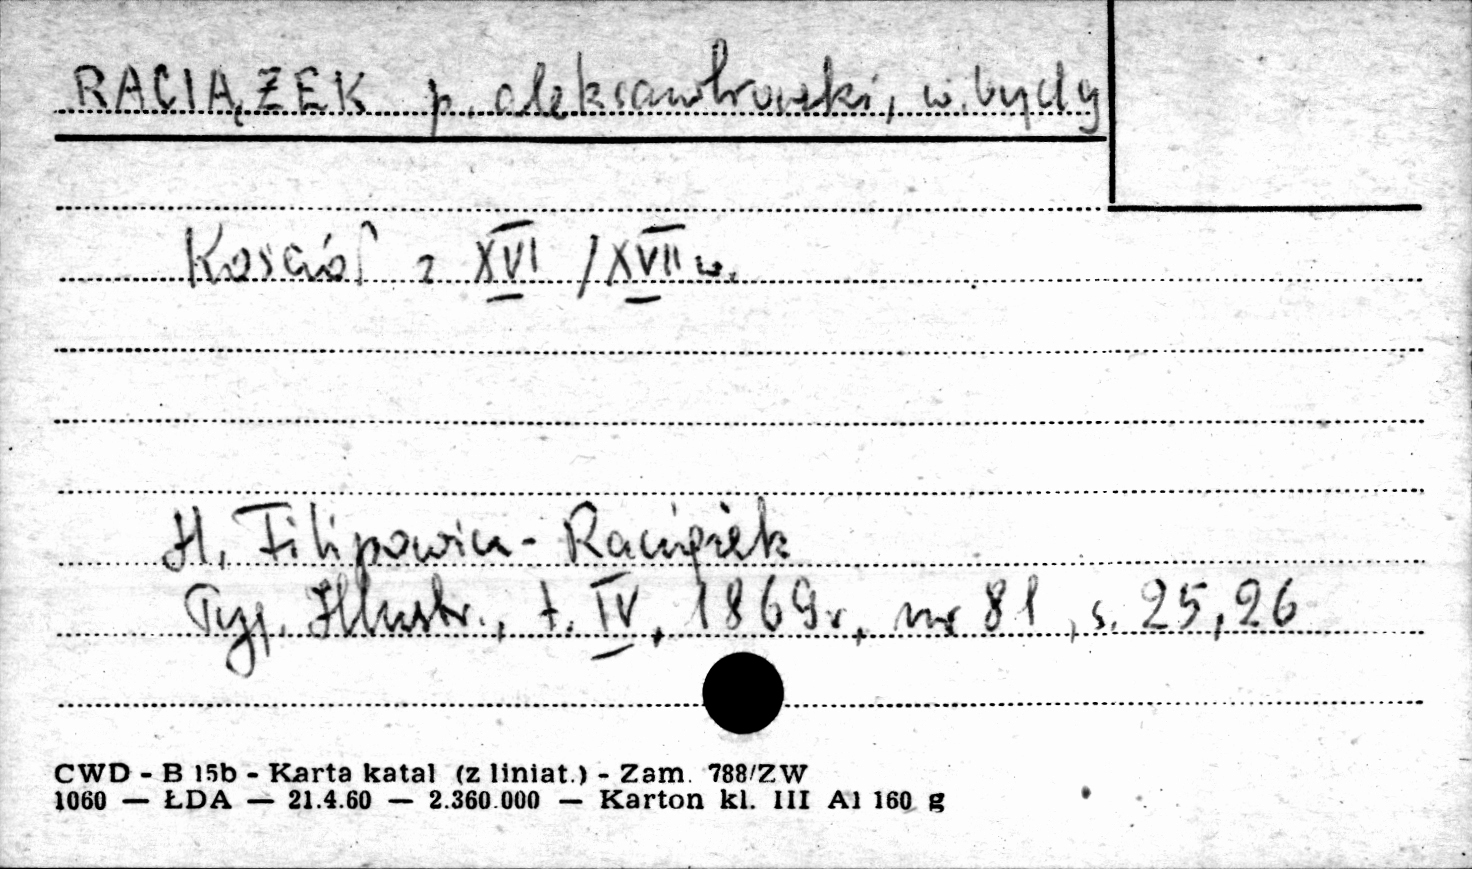 RACIĄŻEK p. aleksandrowski, w. bydg
Kościół z XVI / XVII w.
H. Filipowicz - Raciążek
Tyg. Illustr., t. IV, 1869r, nr 81, s. 25, 26
CWD - B 15b - Karta katal (z liniat.) - Zam. 788/ZW
1060 — ŁDA — 21.4.60 — 2.360.000 — Karton kl. III A1 160 g